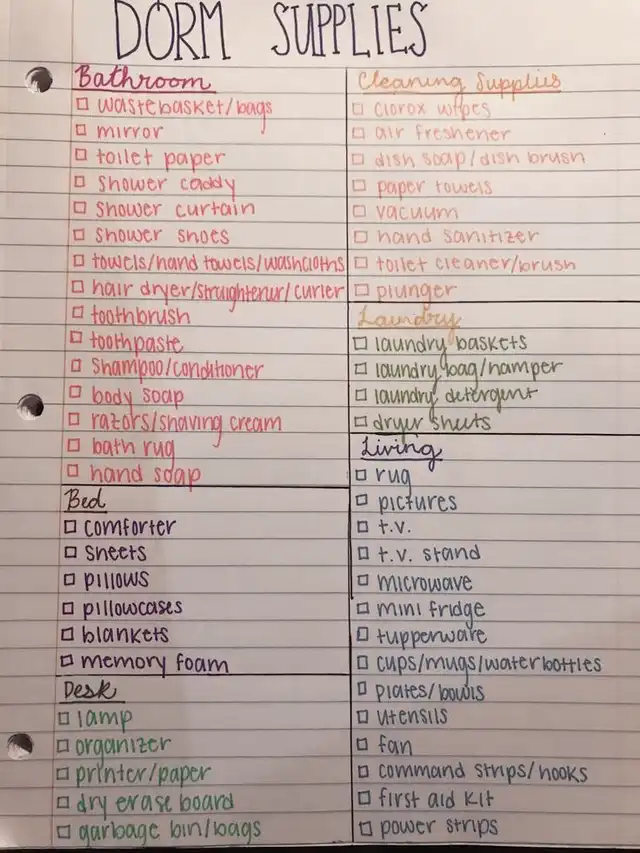 DORM SUPPLIES
Bathroom
wastebasket/bags
mirror
toilet paper
shower caddy
shower curtain
shower shoes
towels/hand towels/washcloths
hair dryer/straightener/curler
toothbrush
toothpaste
shampoo/conditioner
body soap
razors/shaving cream
bath rug
hand soap
Bed
comforter
sheets
pillows
pillowcases
blankets
memory foam
Desk
lamp
organizer
printer/paper
dry erase board
garbage bin/bags
Cleaning Supplies
clorox wipes
air freshener
dish soap/dish brush
paper towels
vacuum
hand sanitizer
toilet cleaner/brush
plunger
Laundry
laundry baskets
laundry bag/hamper
laundry detergent
dryer sheets
Living
rug
pictures
t.v.
t.v. stand
microwave
mini fridge
tupperware
cups/mugs/waterbottles
plates/bowls
utensils
fan
command strips/hooks
first aid kit
power strips